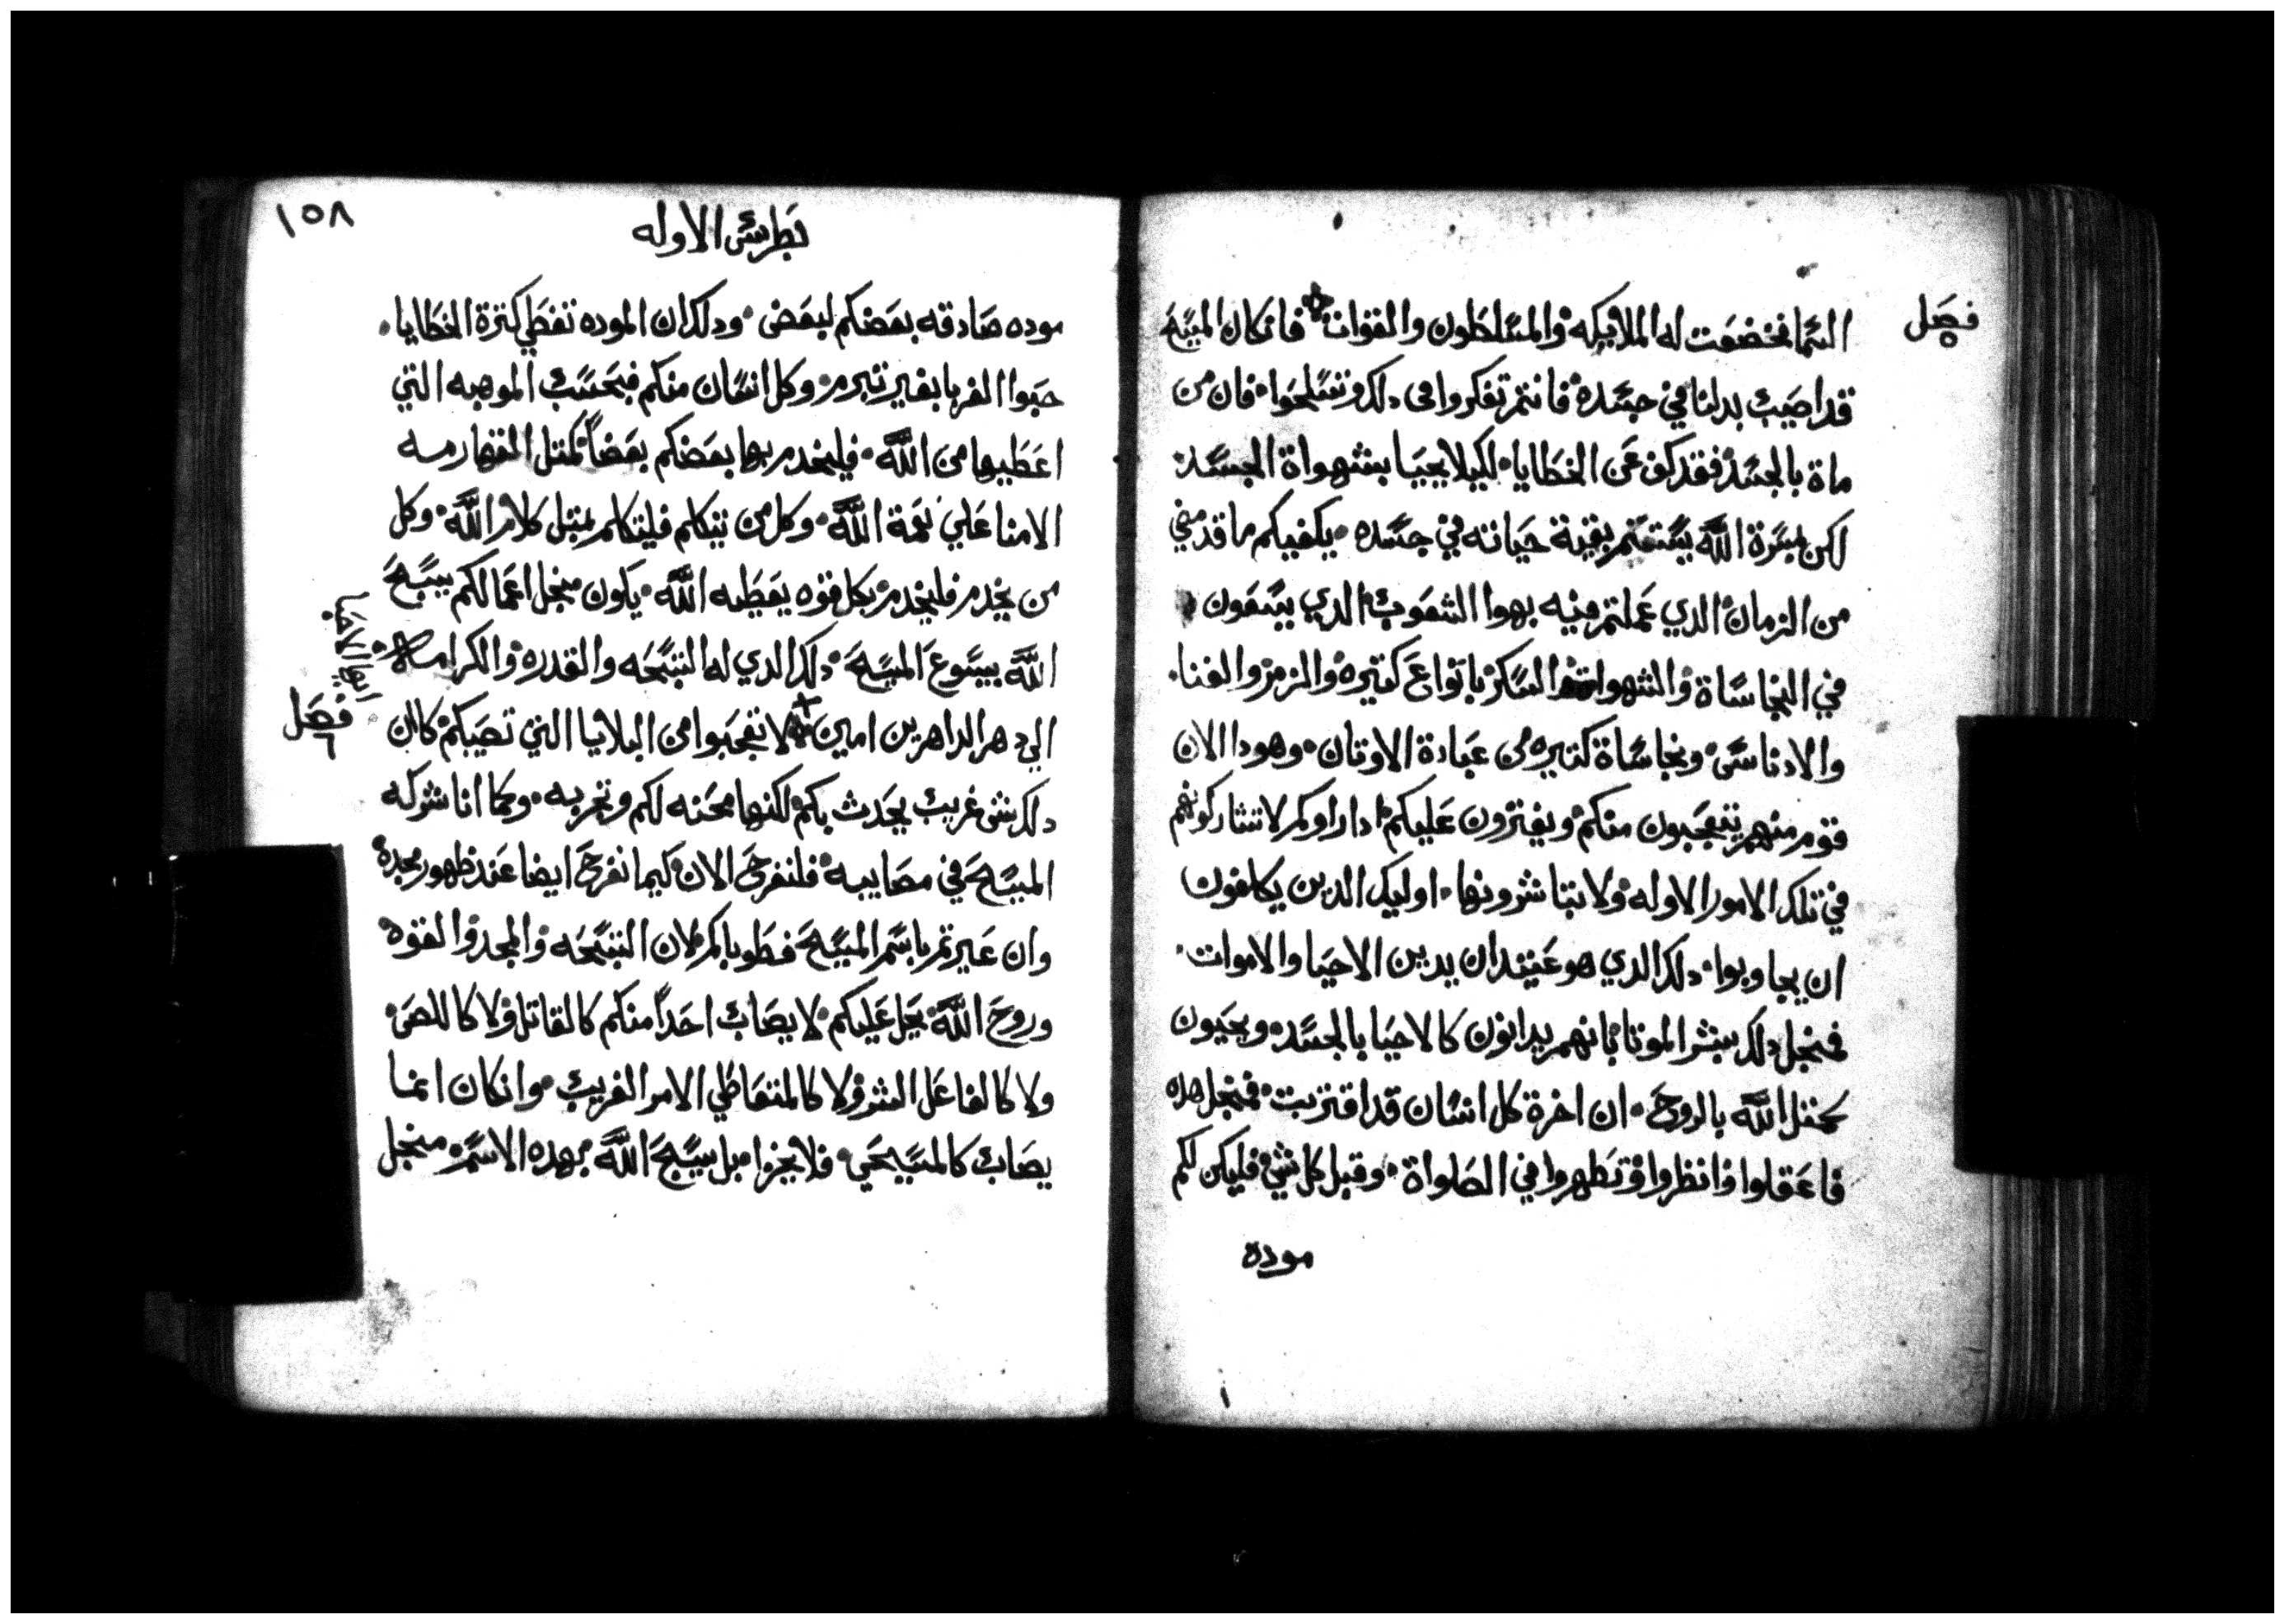 فصل
٥
السما فخضعت له الملايكه والمسلطون والقوات فانكان المسيح
قد اصيب بدلنا في جسده فانتم تفكروا في دلك وتسلحوا فان من
ماة بالجسد فقد كف عن الخطايا لكيلا يحيا بشهواة الجسد
لكن بمسرة الله يستتم بقية حياته في جسده يكفيكم ما قد مضي
من الزمان الدي عملتم فيه بهوا الشعوب الدي يسعون
في النجاساة والشهواة والسكر بانواع كتيره والزمر والغنا
والادناس ونجاساة كتيره من عبادة الاوتان وهودا الان
قوم منهم يتعجبون منكم ويفترون عليكم ادا راوكم لا تشاركونهم
في تلك الامور الاوله ولا تباشرونها اوليك الدين يكلفون
ان يجاوبوا دلك الدي هو عتيد ان يدين الاحيا والاموات
فمنجل دلك بشر الموتا بانهم يدانون كالاحيا بالجسد ويحيون
كمتل الله بالروح ان اخرة كل انسان قد اقتربت فمنجل هده
فاعقلوا وانظروا وتطهروا في الصلواة وقبل كل شي فليكن لكم
موده
١٥٨
بطرس الاوله
موده صادقه بعضكم لبعض ودلك ان الموده تغطي كترة الخطايا
حبوا الغربا بغير تبرم وكل انسان منكم فبحسب الموهبه التي
اعطيها من الله فليخدم بها بعضكم بعضاً كمتل القهارمه
الامنا علي نعمة الله وكل من يتكلم فليتكلم بمتل كلام الله وكل
من يخدم فليخدم بكل قوه يعطيه الله يكون منجل اعمالكم يسبح
الله بيسوع المسيح دلك الدي له التسبحه والقدره والكرامه
الي دهر الداهرين امين لا تعجبوا من البلايا التي تصيبكم كان
فصل
٦
دلك شي غريب يحدث بكم لكنها محنه لكم وتجربه وكما انا شركه
المسيح في مصايبه فلنفرح الان كيما نفرح ايضا عند ظهور مجده
وان عيرتم باسم المسيح فطوباكم لان التسبحه والمجد والقوه
وروح الله يحل عليكم لا يصاب احداً منكم كالقاتل ولا كاللص
ولا كالفاعل الشر ولا كالمتعاطي الامر الغريب وانكان انما
يصاب كالمسيحي فلا يخزا بل يسبح الله بهده الاسم منجل